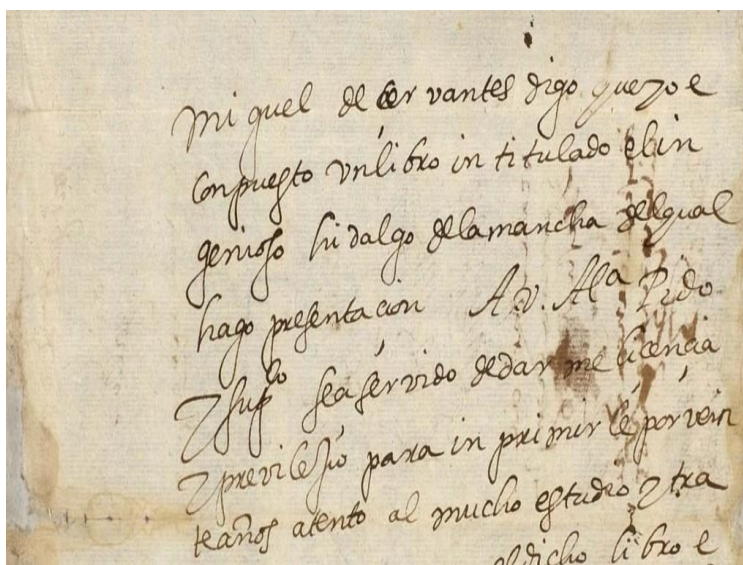 Miguel de cervantes digo que yo e
conpuesto vn libro intitulado el in
genioso hidalgo de la mancha del qual
hago presentacion A V. Alª Pido
y supco sea servido de darme licencia
y previlejio para inprimirle por vein
te años atento al mucho estudio y tra
el dicho libro e